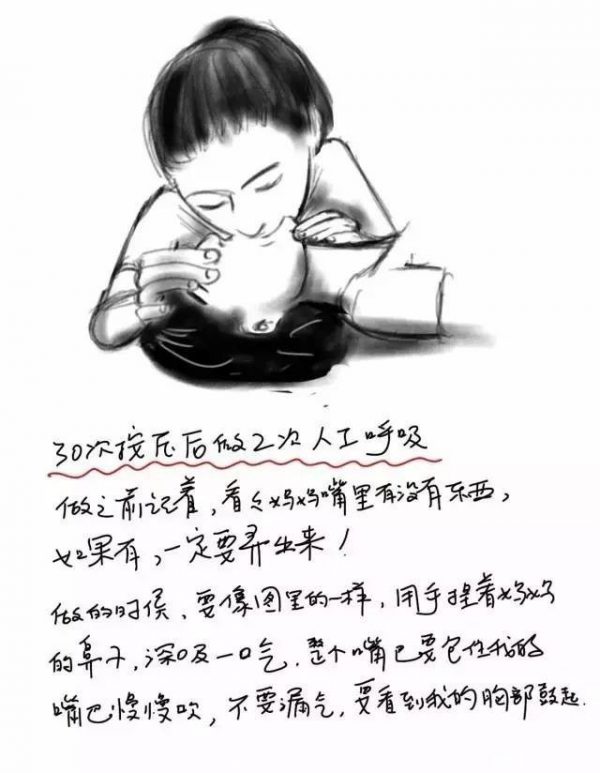 30次按压后做2次人工呼吸
做之前记着，看看妈妈嘴里有没有东西，
如果有，一定要弄出来！
做的时侯，要像图里的一样，用手捏着妈妈
的鼻子，深吸一口气，整个嘴巴要包住我的
嘴巴慢慢吹，不要漏气，要看到我的胸部鼓起.